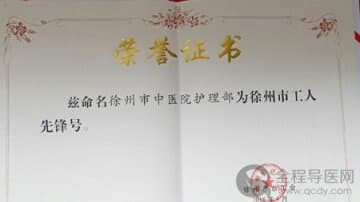 荣誉证书
兹命名徐州市中医院护理部为徐州市工人
先锋号。
全程导医网
www.qcdy.com